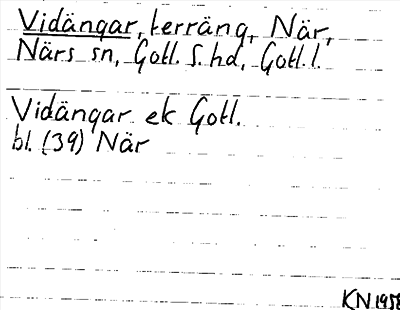 Vidängar, terräng, När,
Närs sn, Gotl. S. hd, Gotl. l.
Vidängar ek Gotl.
bl. (39) När
KN 1958